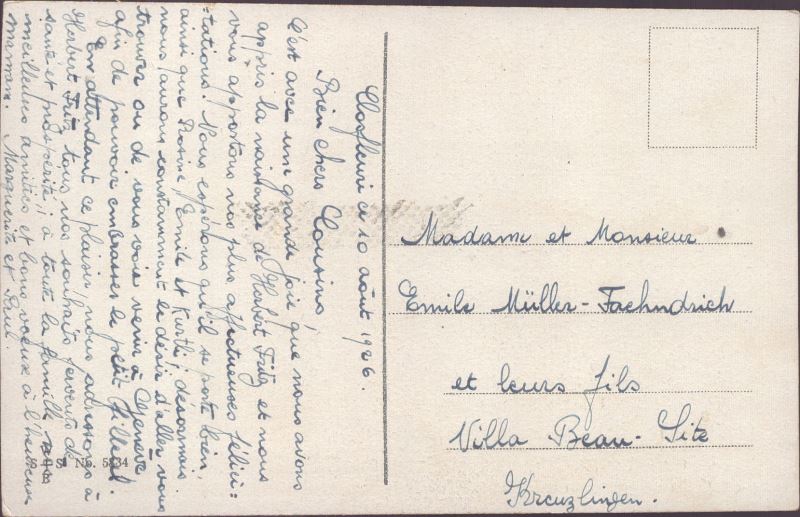 Clos fleuri ce 10 août 1926.
Bien chers Cousins,
C'est avec une grande joie que nous avons
appris la naissance de Herbert Fritz et nous
vous apportons nos plus affectueuses félici-
tations. Nous espérons qu'il se porte bien,
ainsi que Rosine, Emile et Kurtli; désormais
nous aurons constamment le désir d'aller vous
trouver ou de vous voir venir à Genève
afin de pouvoir embrasser le petit filleul.
En attendant ce plaisir, nous adressons à
Herbert Fritz tous nos souhaits fervents de
santé et prospérité; à toute la famille nos
meilleures amitiés et bons vœux à l'heureuse
maman. Marguerite et Paul.
No. 5834
Madame et Monsieur
Emile Müller-Faehndrich
et leurs fils
Villa Beau-Site
Kreuzlingen.